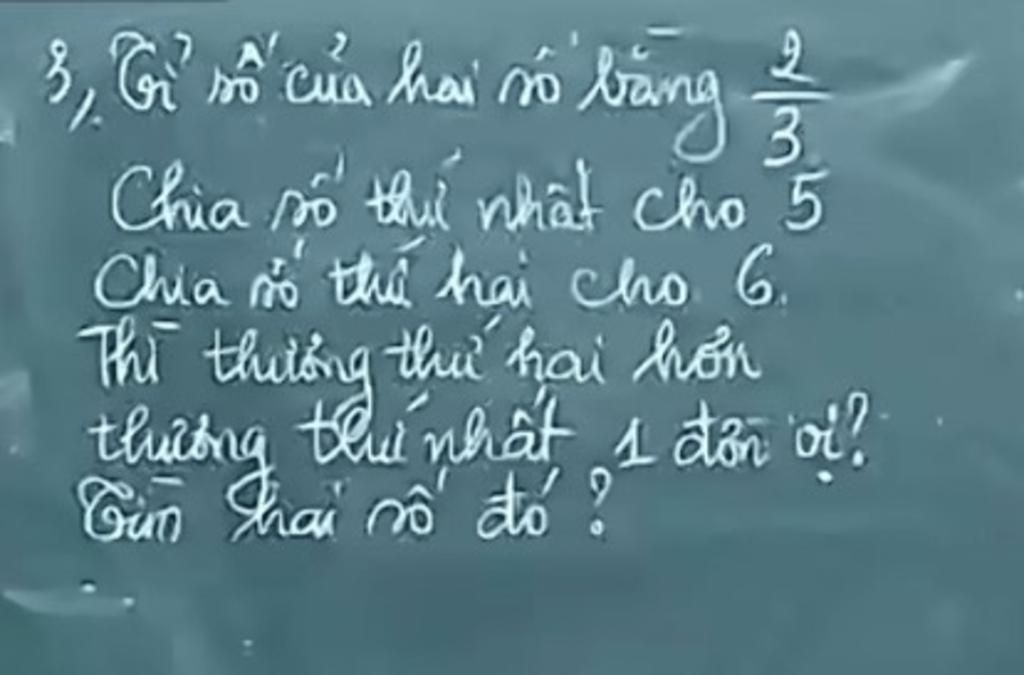 3, Tỉ số của hai số bằng 2/3
Chia số thứ nhất cho 5
Chia số thứ hai cho 6.
Thì thương thứ hai hơn
thương thứ nhất 1 đơn vị?
Tìm hai số đó?